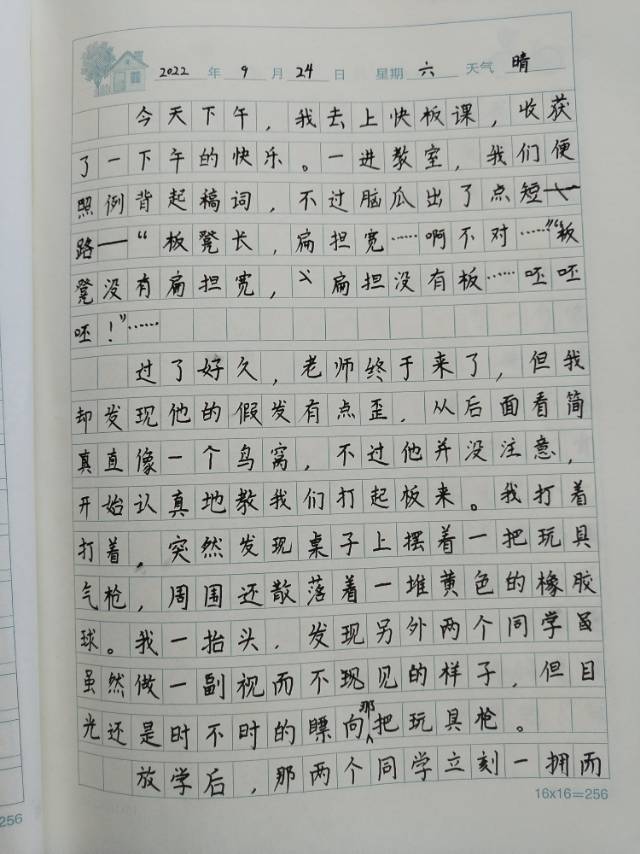 2022 年 9 月 24 日 星期 六 天气 晴
今天下午，我去上快板课，收获
了一下午的快乐。一进教室，我们便
照例背起稿词，不过脑瓜出了点短一
路——“板凳长，扁担宽……啊不对……”“板
凳没有扁担宽，扁担没有板……呸呸
呸！”……
过了好久，老师终于来了，但我
却发现他的假发有点歪，从后面看简
真直像一个鸟窝，不过他并没注意，
开始认真地教我们打起板来。我打着
打着，突然发现桌子上摆着一把玩具
气枪，周围还散落着一堆黄色的橡胶
球。我一抬头，发现另外两个同学虽
虽然做一副视而不现见的样子，但目
光还是时不时的瞟向那把玩具枪。
放学后，那两个同学立刻一拥而
16x16=256
256